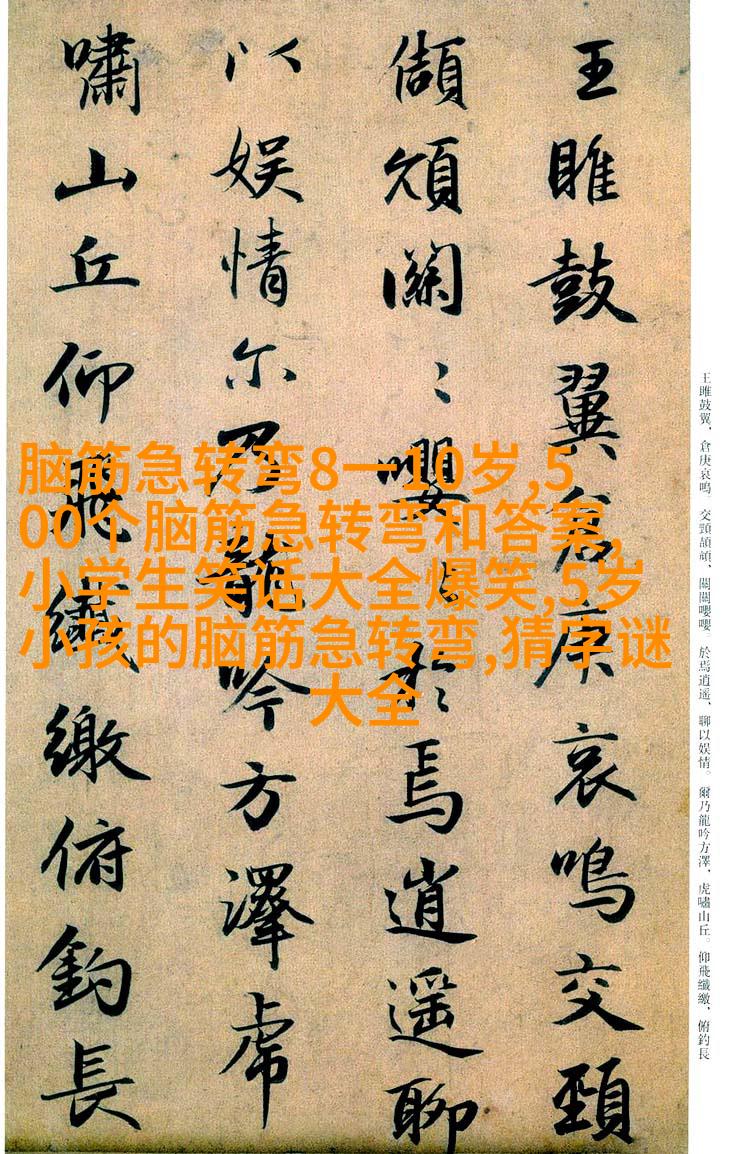 王雎鼓翼倉庚哀鳴交頸
頡頏關〻嚶〻於焉逍遥聊
以娱情尔乃龍吟方澤虎
嘯山丘仰飛纖繳俯釣長
王雎鼓翼，倉庚哀鳴。交頸頡頏，關關嚶嚶。於焉逍遥，聊以娱情。爾乃龍吟方澤，虎嘯山丘。仰飛纖繳，俯釣長
脑筋急转弯8一10岁,5
00个脑筋急转弯和答案,
小学生笑话大全爆笑,5岁
小孩的脑筋急转弯,猜字谜
大全